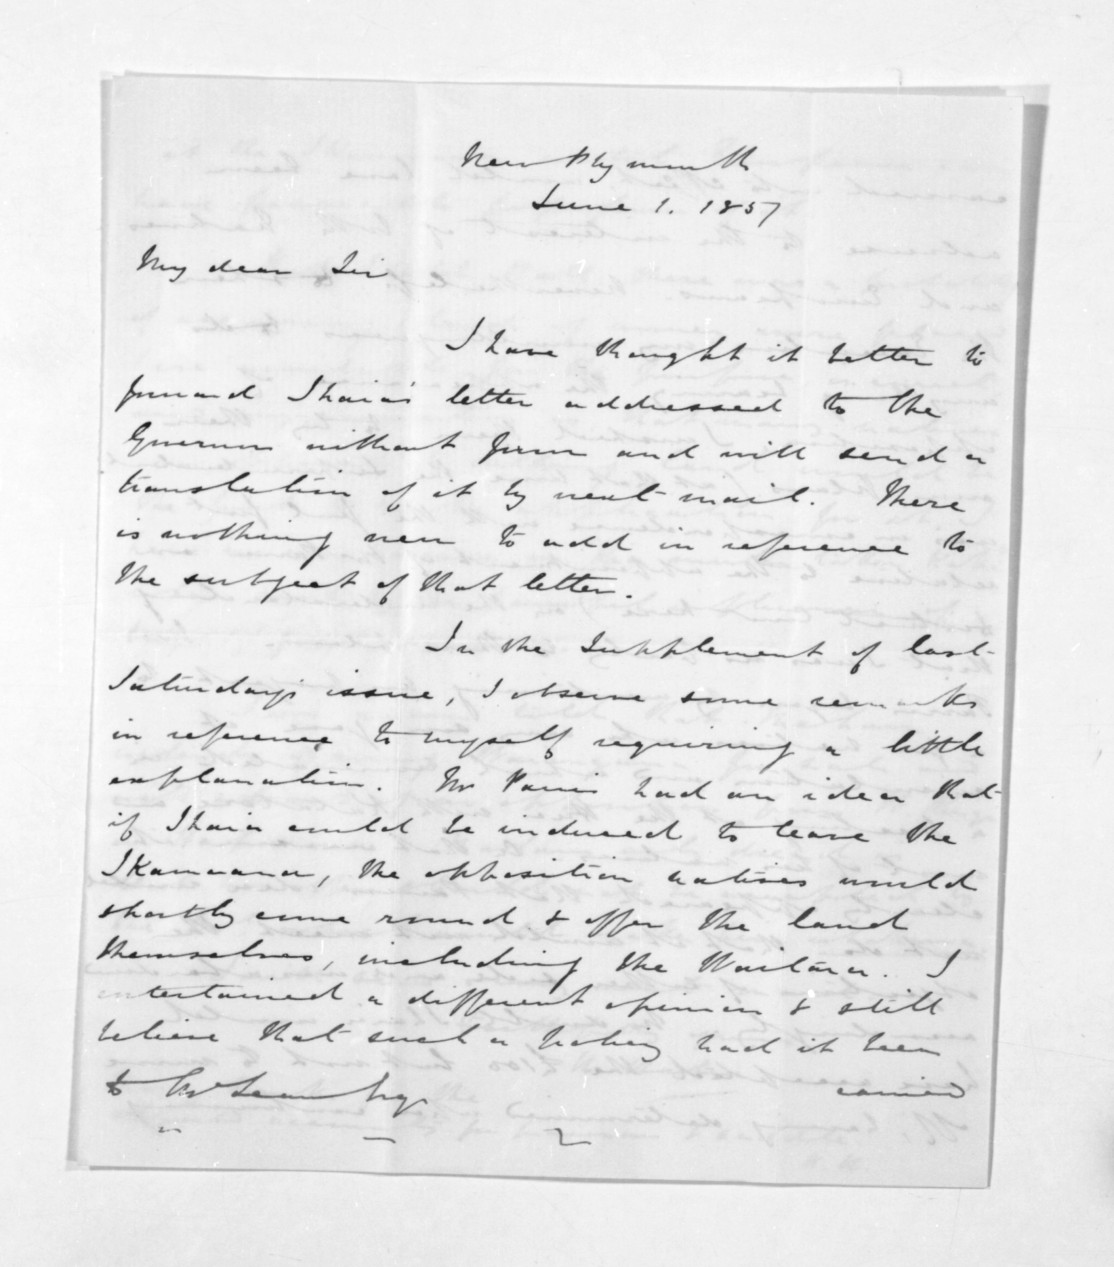 New Plymouth
June 1. 1857
My dear Sir
I have thought it better to
forward Ihaia's letter addressed to the
Governor without form and will send a
translation of it by next mail. There
is nothing new to add in reference to
the subject of that letter.
In the Supplement of last
Saturday's issue, I observe some remarks
in reference to myself requiring a little
explanation. Mr Parris had an idea that
if Ihaia could be induced to leave the
Ikamoana, the opposition natives would
shortly come round & offer the land
themselves, including the Waitara. I
entertained a different opinion & still
believe that such a policy had it been
carried
to McLean Esqr